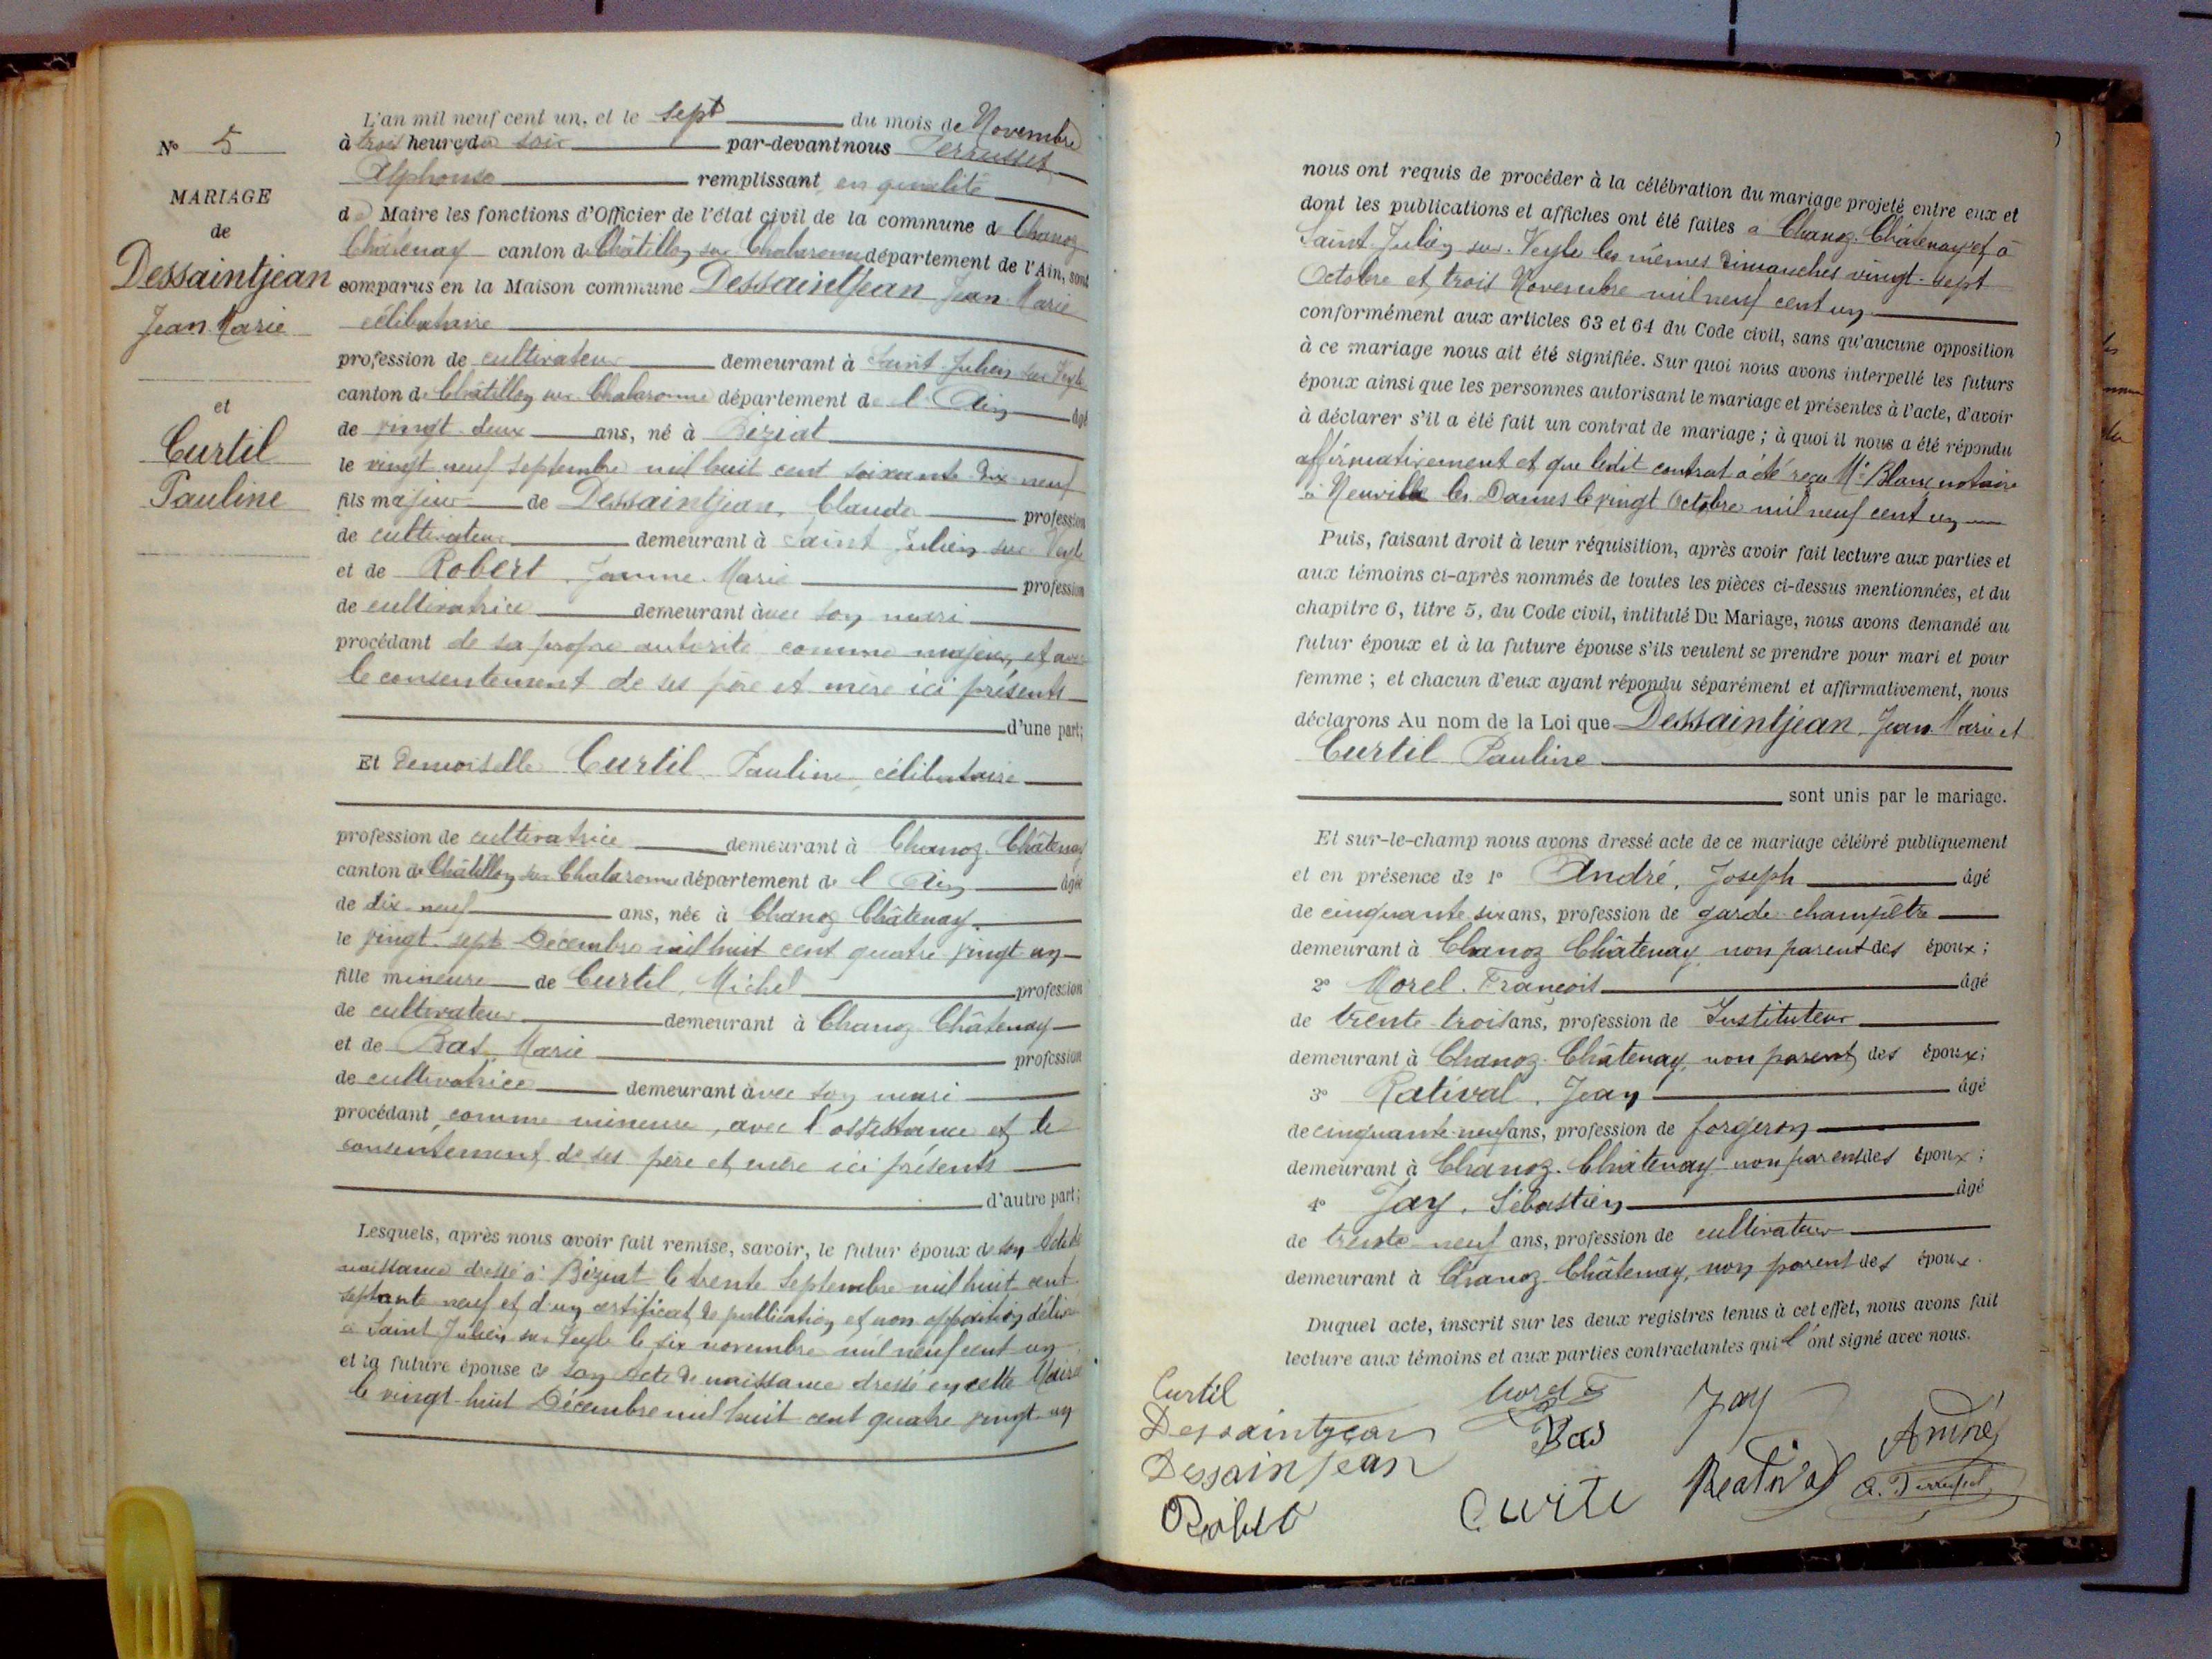 N° 5
MARIAGE
de
Dessaintjean
Jean Marie
et
Curtil
Pauline
L'an mil neuf cent un, et le sept du mois de Novembre
à trois heures du soir par-devant nous Perrusset
Alphonse remplissant en qualité
de Maire les fonctions d'Officier de l'état civil de la commune de Chanoz
Châtenay canton de Châtillon sur Chalaronne département de l'Ain, sont
comparus en la Maison commune Dessaintjean Jean Marie
célibataire
profession de cultivateur demeurant à Saint Julien sur Veyle
canton de Châtillon sur Chalaronne département de l'Ain âgé
de vingt deux ans, né à Biziat
le vingt neuf septembre mil huit cent soixante dix neuf
fils majeur de Dessaintjean, Claude profession
de cultivateur demeurant à Saint Julien sur Veyle
et de Robert, Jeanne Marie profession
de cultivatrice demeurant avec son mari
procédant de sa propre autorité comme majeur, et avec
le consentement de ses père et mère ici présents
d'une part;
Et Demoiselle Curtil Pauline, célibataire
profession de cultivatrice demeurant à Chanoz-Châtenay
canton de Châtillon sur Chalaronne département de l'Ain âgée
de dix-neuf ans, née à Chanoz Châtenay
le vingt-sept Décembre mil huit cent quatre vingt un
fille mineure de Curtil, Michel profession
de cultivateur demeurant à Chanoz Châtenay
et de Bas, Marie profession
de cultivatrice demeurant avec son mari
procédant comme mineure, avec l'assistance et le
consentement de ses père et mère ici présents
d'autre part;
Lesquels, après nous avoir fait remise, savoir, le futur époux de son Acte de
naissance dressé à Biziat le trente Septembre mil huit cent
septante neuf et d'un certificat de publication et non opposition délivré
à Saint Julien sur Veyle le six novembre mil neuf cent un
et la future épouse de son Acte de naissance dressé en cette Mairie
le vingt-huit Décembre mil huit cent quatre vingt-un
nous ont requis de procéder à la célébration du mariage projeté entre eux et
dont les publications et affiches ont été faites à Chanoz-Châtenay et à
Saint-Julien sur-Veyle les mêmes dimanches vingt-sept
Octobre et trois Novembre mil neuf cent un
conformément aux articles 63 et 64 du Code civil, sans qu'aucune opposition
à ce mariage nous ait été signifiée. Sur quoi nous avons interpellé les futurs
époux ainsi que les personnes autorisant le mariage et présentes à l'acte, d'avoir
à déclarer s'il a été fait un contrat de mariage ; à quoi il nous a été répondu
affirmativement et que ledit contrat a été reçu Me Blanc notaire
à Neuville les Dames le vingt Octobre mil neuf cent un
Puis, faisant droit à leur réquisition, après avoir fait lecture aux parties et
aux témoins ci-après nommés de toutes les pièces ci-dessus mentionnées, et du
chapitre 6, titre 5, du Code civil, intitulé Du Mariage, nous avons demandé au
futur époux et à la future épouse s'ils veulent se prendre pour mari et pour
femme ; et chacun d'eux ayant répondu séparément et affirmativement, nous
déclarons Au nom de la Loi que Dessaintjean, Jean Marie et
Curtil Pauline
sont unis par le mariage.
Et sur-le-champ nous avons dressé acte de ce mariage célébré publiquement
et en présence de 1° André, Joseph âgé
de cinquante six ans, profession de garde-champêtre
demeurant à Chanoz Châtenay non parent des époux ;
2° Morel. François âgé
de trente-trois ans, profession de Instituteur
demeurant à Chanoz-Châtenay, non parent des époux ;
3° Ratival, Jean âgé
de cinquante-neuf ans, profession de forgeron
demeurant à Chanoz-Châtenay non parent des époux ;
4° Jay, Sébastien âgé
de trente-neuf ans, profession de cultivateur
demeurant à Chanoz-Châtenay, non parent des époux.
Duquel acte, inscrit sur les deux registres tenus à cet effet, nous avons fait
lecture aux témoins et aux parties contractantes qui l'ont signé avec nous.
Curtil Morel F Jay
Dessaintjean Bas André
Dessainjean
Robert Reatival A. Perrusset